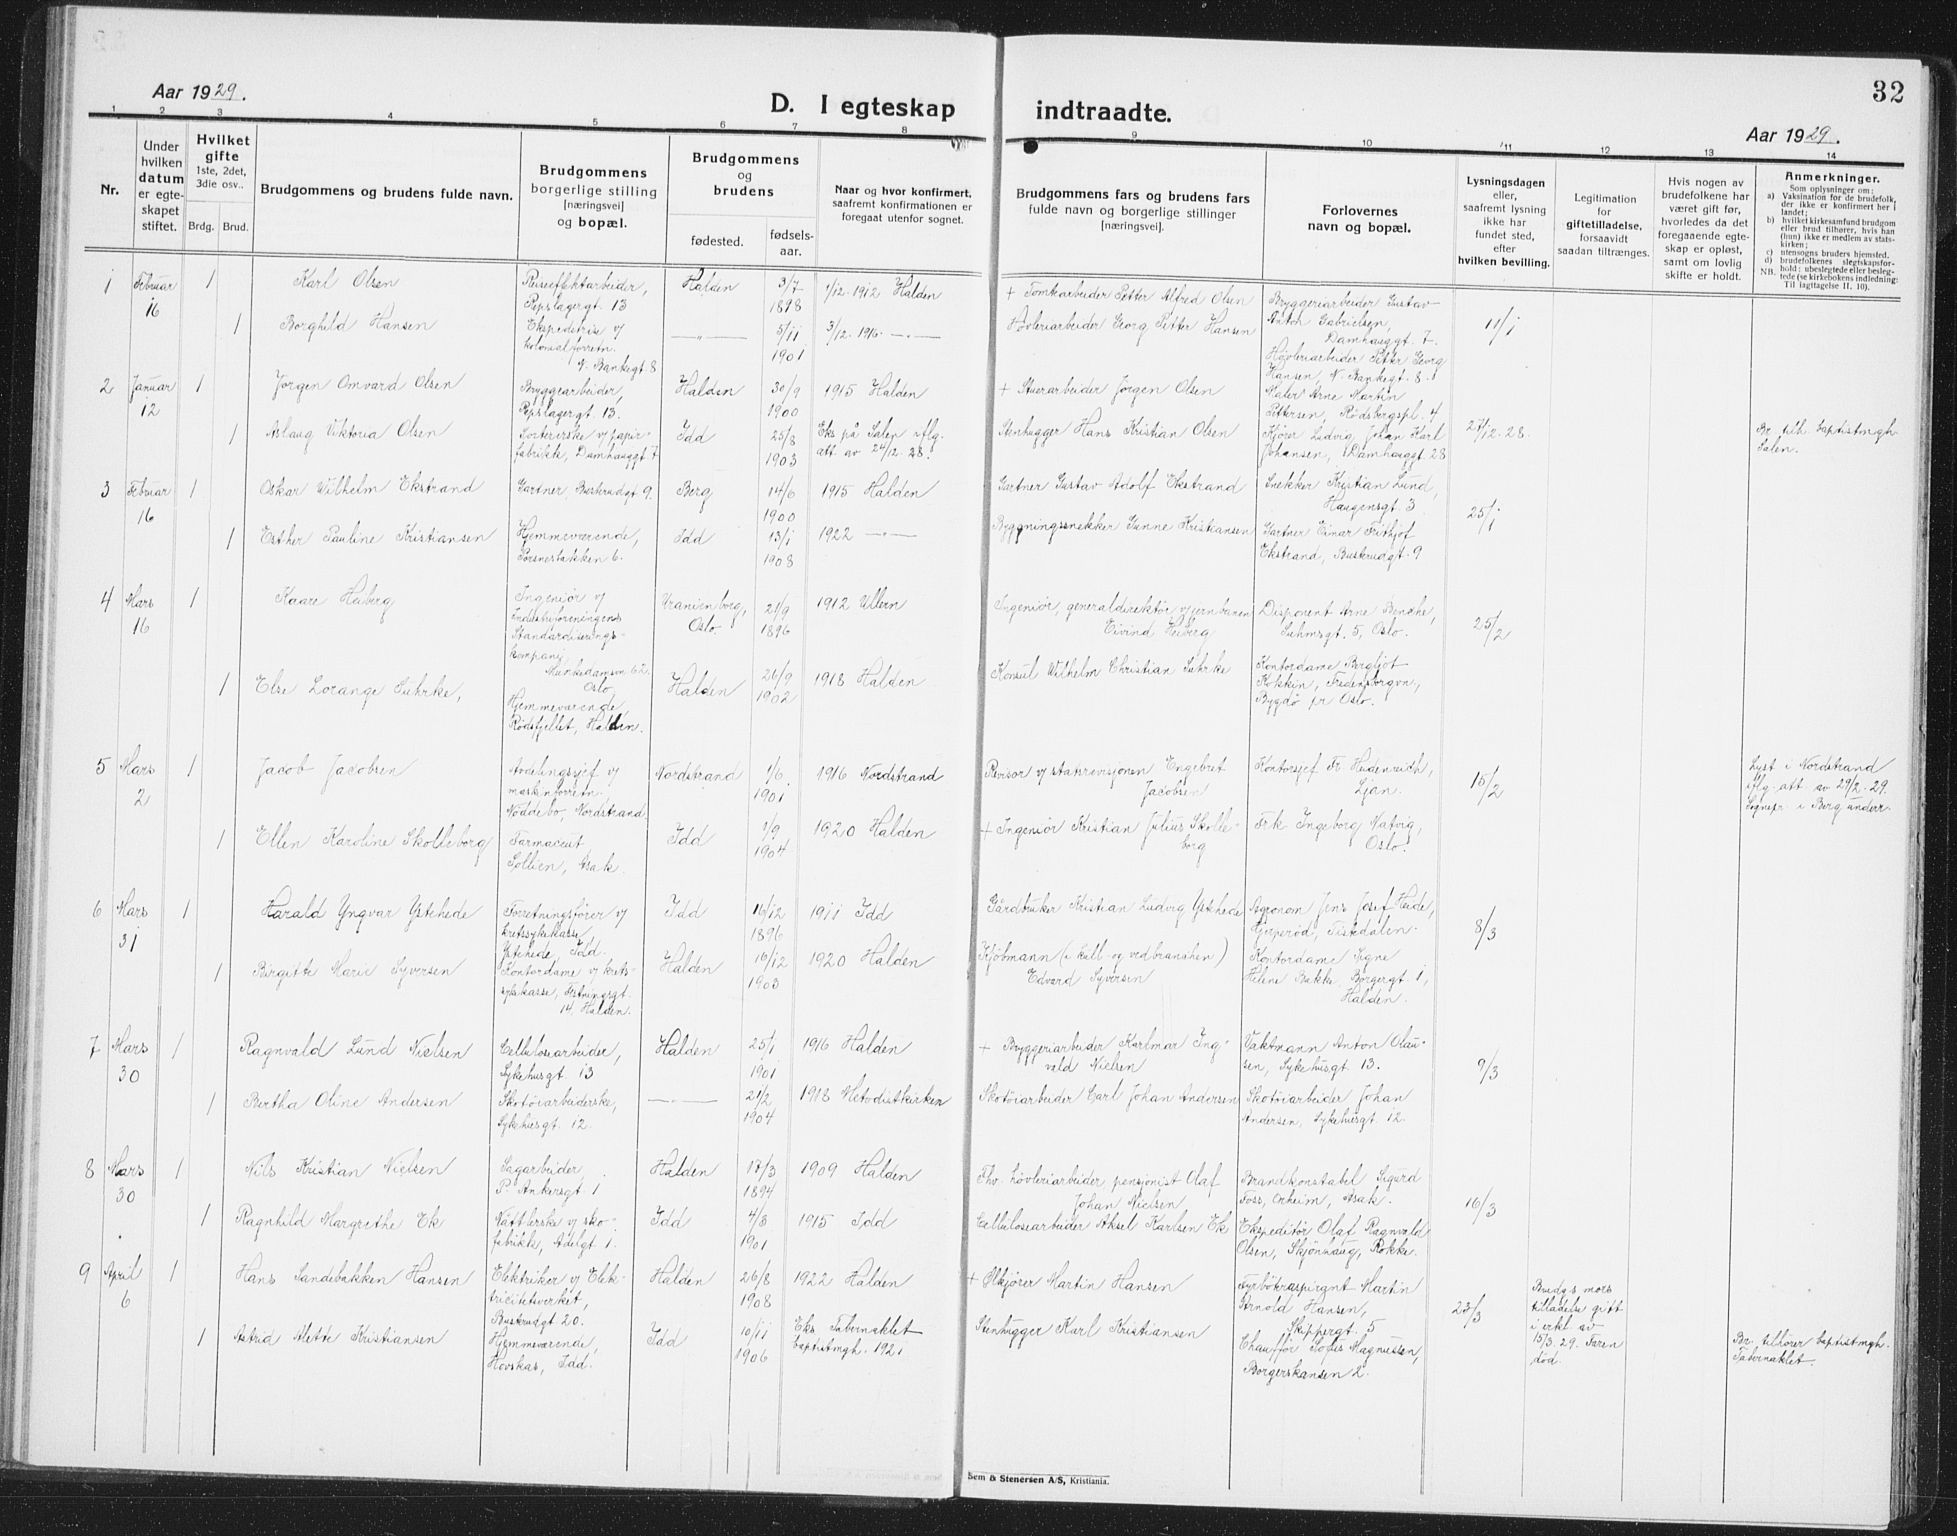 32
Aar 1929.
D. I egteskap indtraadte.
Aar 1929.
1 2 3 4 5 6 7 8 9 10 11 12 13 14
Nr.
Under hvilken datum er egteskapet stiftet.
Hvilket gifte 1ste, 2det, 3die osv..
Brdg. Brud.
Brudgommens og brudens fulde navn.
Brudgommens borgerlige stilling [næringsvei] og bopæl.
Brudgommens og brudens
fødested. fødselsaar.
Naar og hvor konfirmert, saafremt konfirmationen er foregaat utenfor sognet.
Brudgommens fars og brudens fars fulde navn og borgerlige stillinger [næringsvei].
Forlovernes navn og bopæl.
Lysningsdagen eller, saafremt lysning ikke har fundet sted, efter hvilken bevilling.
Legitimation for giftetilladelse, forsaavidt saadan tiltrænges.
Hvis nogen av brudefolkene har været gift før, hvorledes da det foregaaende egteskap er opløst, samt om lovlig skifte er holdt.
Anmerkninger.
Som oplysninger om:
a) Vaksination for de brudefolk, der ikke er konfirmert her i landet;
b) hvilket kirkesamfund brudgom eller brud tilhører, hvis han (hun) ikke er medlem av statskirken;
c) utensogns bruders hjemsted.
d) brudefolkenes slegtskapsforhold: ubeslegtede eller beslegtede (se kirkebokens indledning:
NB. Til iagttagelse II, 10).
1 Februar 16 1 Karl Olsen Reiseeffektarbeider, Repslagergt 13 Halden 3/7 1898 1/12-1912 Halden + Tomtearbeider Petter Alfred Olsen Bryggeriarbeider Gustav Anton Gabrielsen, Damhauggt. 7. 11/1
1 Borghild Hansen Ekspeditrise v/ kolonialforretn. N. Bankegt. 8 —"— 5/11 1901 3/12-1916 —"— Høvleriarbeider Georg Petter Hansen Høvleriarbeider Petter Georg Hansen, N. Bankegt. 8.
2 Januar 12 1 Jørgen Omvard Olsen Byggearbeider, Repslagergt. 13. Halden 30/9 1900 1915 Halden + Stuerarbeider Jørgen Olsen Maler Arne Martin Pettersen, Rødsbergspl. 4 27/12-28.
1 Aslaug Viktoria Olsen Sortererske v/ papirfabrikk, Damhauggt 7 Idd 25/8 1903 Eks på Salen iflg. att. av 24/12-28. Stenhugger Hans Kristian Olsen Kjører Ludvig Johan Karl Johansen, Damhauggt. 28 Br. tilh. baptistmgh. Salen.
3 Februar 16 1 Oskar Wilhelm Ekstrand Gartner, Buskrudgt 9. Berg 14/6 1900 1915 Halden Gartner Gustav Adolf Ekstrand Snekker Kristian Lund, Haugensgt. 3 25/1
1 Esther Pauline Kristiansen Hjemmeværende, Porsnesbakken 6. Idd 13/1 1908 1922 —"— Byggningssnekker Gunne Kristiansen Gartner Einar Frithjof Ekstrand, Buskrudgt. 9
4 Mars 16 1 Kaare Heiberg Ingeniør v/ Industriforeningens Standardiseringskompani, Munkedamsvn 62 Oslo, Uranienborg, Oslo. 21/9 1896 1912 Ullern Ingeniør, generaldirektør v/ jernbanen Eivind Heiberg Disponent Arne Bendhe, Suhmsgt. 5, Oslo. 25/2
1 Else Lorange Suhrke, Hjemmeværende, Rødsfjellet, Halden. Halden 26/9 1902 1918 Halden Konsul Wilhelm Christian Suhrke Kontordame Bergljot Kokkin, Fredensborgvn., Bygdø pr Oslo.
5 Mars 2 1 Jacob Jacobsen Avdelingssjef v/ maskinforretn. Nøddebo, Nordstrand Nordstrand 1/6 1901 1916 Nordstrand Revisor v/ statsrevisjonen Engebret Jacobsen Kontorsjef Fr. Heidenreich, Ljan. 15/2 Lyst i Nordstrand iflg. att av 29/2-29. Sognepr. i Berg underr.
1 Ellen Karoline Skolleborg Farmaceut, Sollien, Asak. Idd 1/9 1904 1920 Halden + Ingeniør Kristian Julius Skolleborg Frk. Ingeborg Natvig, Oslo.
6 Mars 31 1 Harald Yngvar Ystehede Forretningsfører v/ kretssykekasse, Ystehede, Idd. Idd 16/12 1896 1911 Idd Gårdbruker Kristian Ludvig Ystehede Agronom Jens Josef Heide, Gjerperød, Tistedalen. 8/3
1 Birgitte Marie Syversen Kontordame v/ kretssykekasse, Festningsgt. 14, Halden. Halden 16/12 1903 1920 Halden Kjøbmann (i kull- og vedbranshen) Edvard Syversen Kontordame Signe Helene Bakke, Borgergt. 1, Halden.
7 Mars 30 1 Ragnvald Lund Nielsen Cellulosearbeider, Sykehusgt 13 Halden 25/1 1901 1916 Halden + Bryggeriarbeider Karlmar Ingvald Nielsen Vaktmann Anton Olausen, Sykehusgt 13. 9/3
1 Bertha Oline Andersen Skotøiarbeiderske, Sykehusgt. 12. —"— 21/2 1904 1918 Metodistkirken Skotøiarbeider Carl Johan Andersen Skotøiarbeider Johan Andersen, Sykehusgt 12.
8 Mars 30 1 Nils Kristian Nielsen Sagarbeider P. Ankersgt 1 Halden 17/3 1894 1909 Halden Fhv. høvleriarbeider, pensjonist Olaf Johan Nielsen Brandkonstabel Sigurd Foss, Orheim, Asak. 16/3
1 Ragnhild Margrethe Ek Nåttlerske v/ skofabrikk, Adelgt 1. Idd 4/8 1901 1915 Idd Cellulosearbeider Aksel Karlsen Ek Ekspeditør Olaf Ragnvald Olsen, Skjønhaug, Rokke.
9 April 6 1 Hans Sandebakken Hansen Elektriker v/ Elektricitetsverket, Buskrudgt 20. Halden 26/8 1908 1922 Halden + Ølkjører Martin Hansen Fyrbøteraspirant Martin Arnold Hansen, Skippergt. 5 23/3 Brudgs mors tilladelse gitt i erkl av 15/3. 29. Faren død.
1 Astrid Alette Kristiansen Hjemmeværende, Hovskas, Idd. Idd 10/11 1906 Eks Tabernaklet baptistmgh. 1921 Stenhugger Karl Kristiansen Chauffør Sofus Magnussen, Borgerskansen 2. Br. tilhører baptistmgh. Tabernaklet.
Sem & Stenersen A/S, Kristiania.